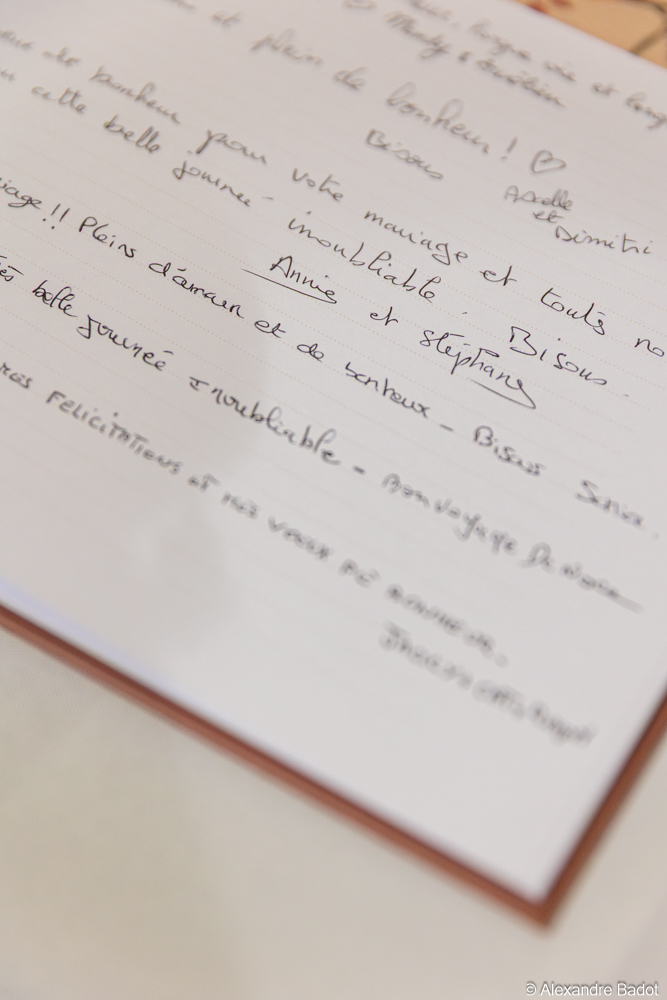 longue vie et
et plein de bonheur ! ♡
Bisous
Axelle
et
Dimitri
de bonheur pour votre mariage et toute no
cette belle journée inoubliable. Bisous.
Annie et Stéphany
iage !! Pleins d'amour et de bonheur - Bisous
belle journée inoubliable - Bon voyage De Noce
FELICITATIONS et mes VOEUX DE BONHEUR.
© Alexandre Badot